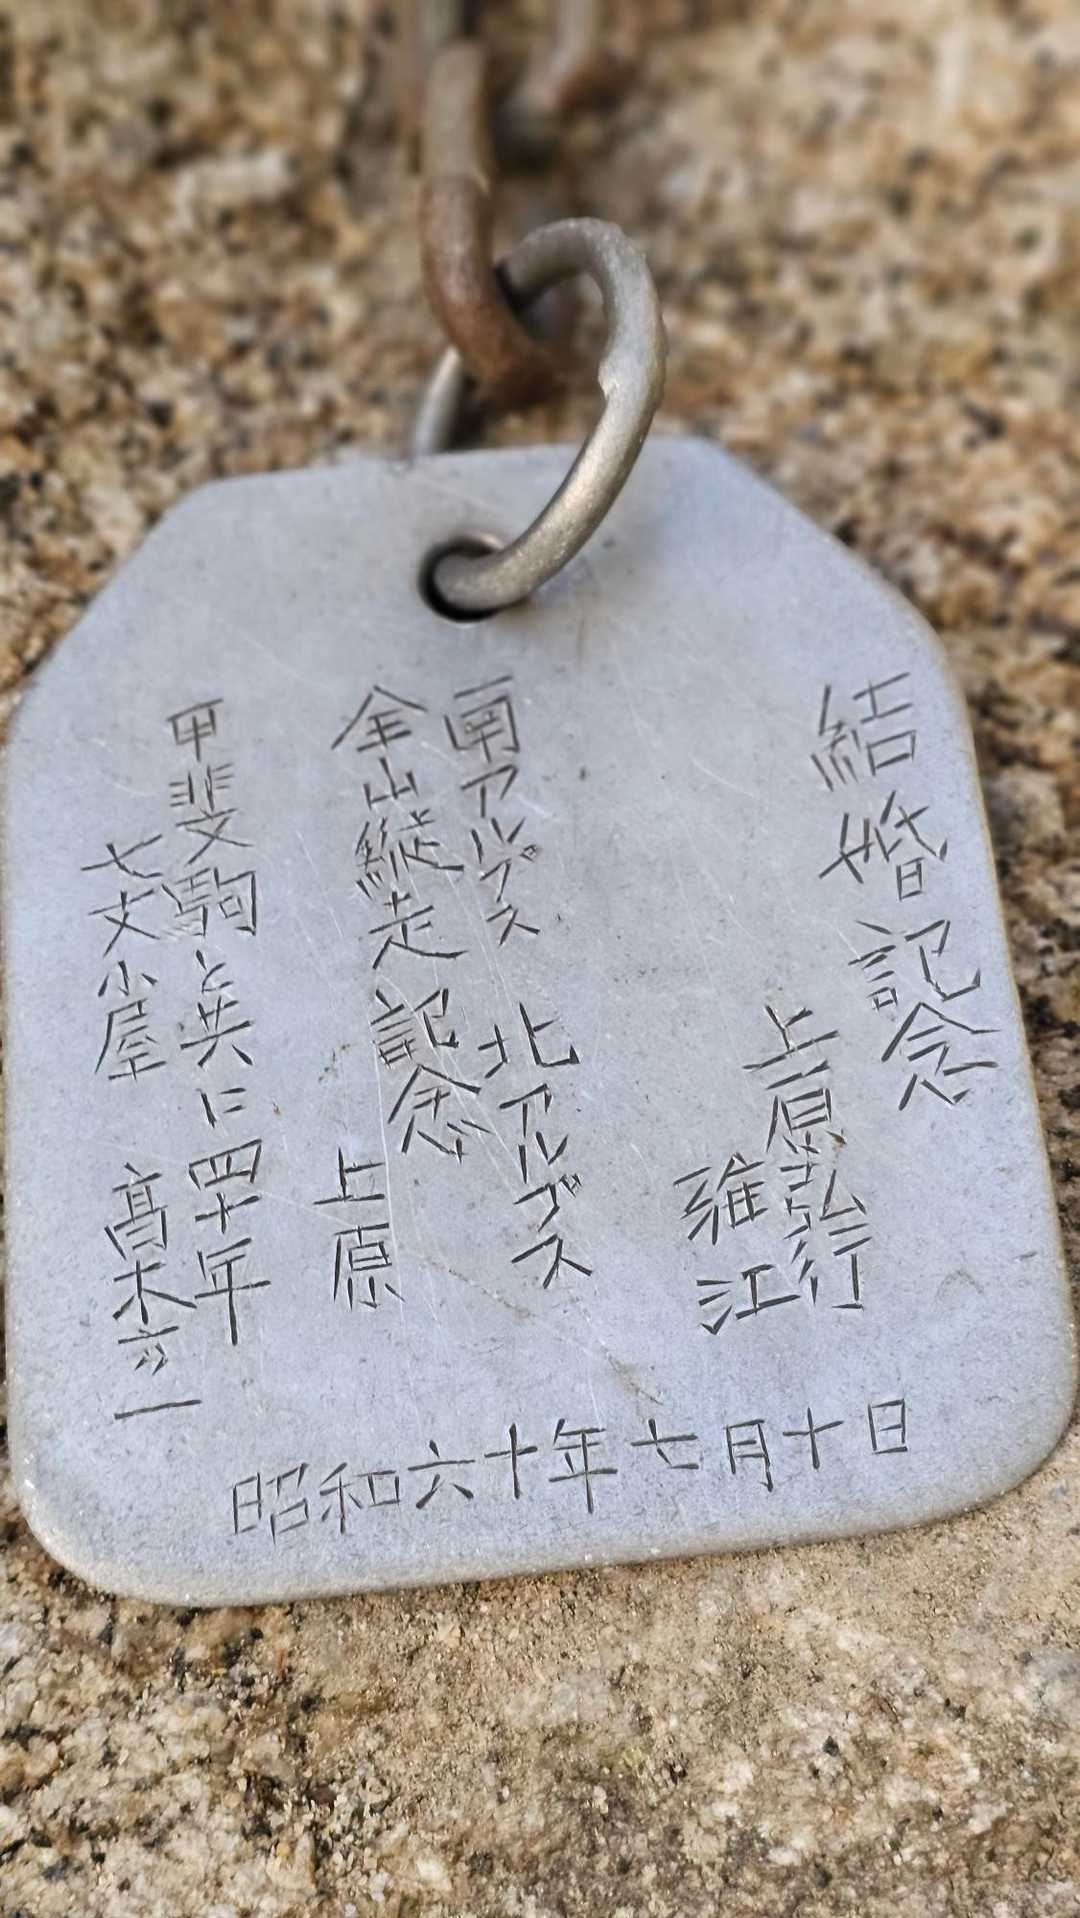 結婚記念
上原弘行
雅江
南アルプス 北アルプス
全山縦走記念 上原
甲斐駒と共に四十年
七丈小屋 高木
昭和六十年七月十日